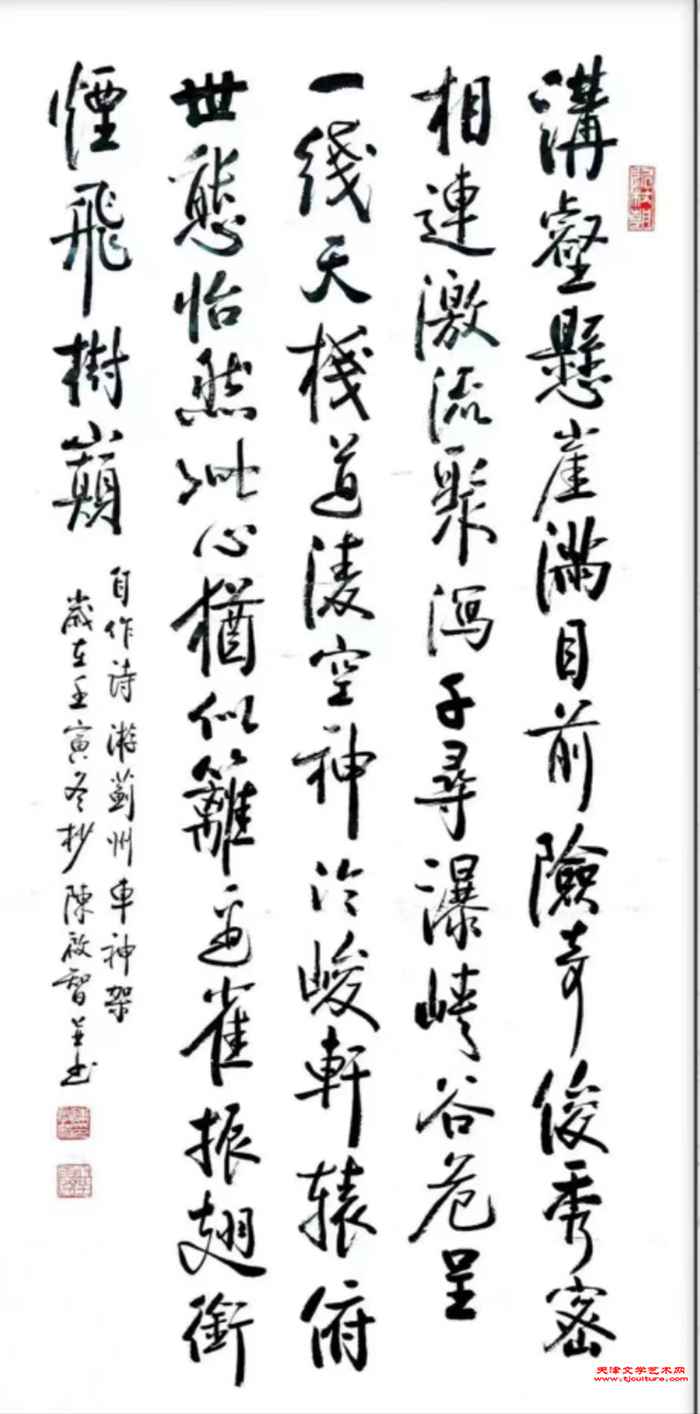 溝壑懸崖滿目前險奇俊秀密
相連激流聚瀉千尋瀑谷危呈
一綫天棧道淩空神冷峻軒轅俯
世態怡然此心猶似籬邊雀振翅銜
煙飛樹巔
自作詩游薊州車神架
歲在壬寅冬杪陳啟智并书
天津文学艺术网
www.tjculture.com